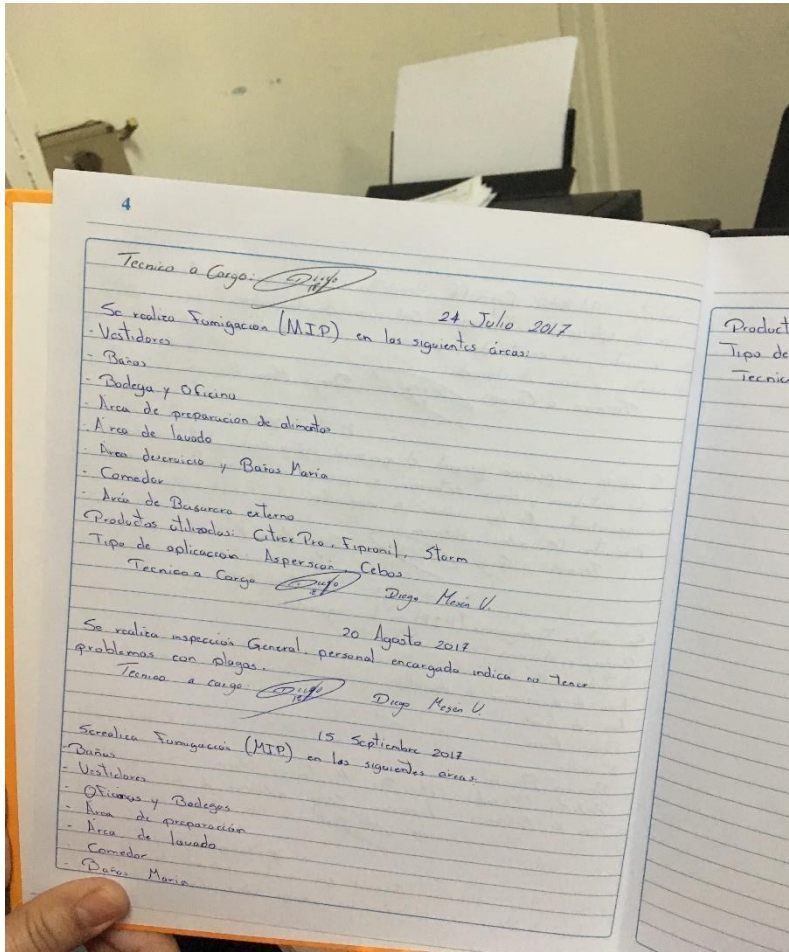 4
Tecnico a Cargo: Diego
24 Julio 2017
Se realiza Fumigación (MIP) en las siguientes áreas:
- Vestidores
- Baños
- Bodega y Oficina
- Area de preparacion de alimentos
- Area de lavado
- Area deservicio y Baños Maria
- Comedor
- Area de Basurero externo
Productos utilizados: Citrex Pro, Fipronil, Storm
Tipo de aplicación Asperscón, Cebos
Tecnico a Cargo Diego Diego Mesén V.
20 Agosto 2017
Se realiza inspección General, personal encargada indica no tener
problemas con plagas.
Tecnico a cargo Diego Diego Mesén V.
15 Septiembre 2017
Serealiza Fumigación (MIP) en las siguientes areas:
- Baños
- Vestidores
- Oficinas y Bodegas
- Area de preparación
- Area de lavado
- Comedor
- Baños Maria
Product
Tipo de
Tecnic